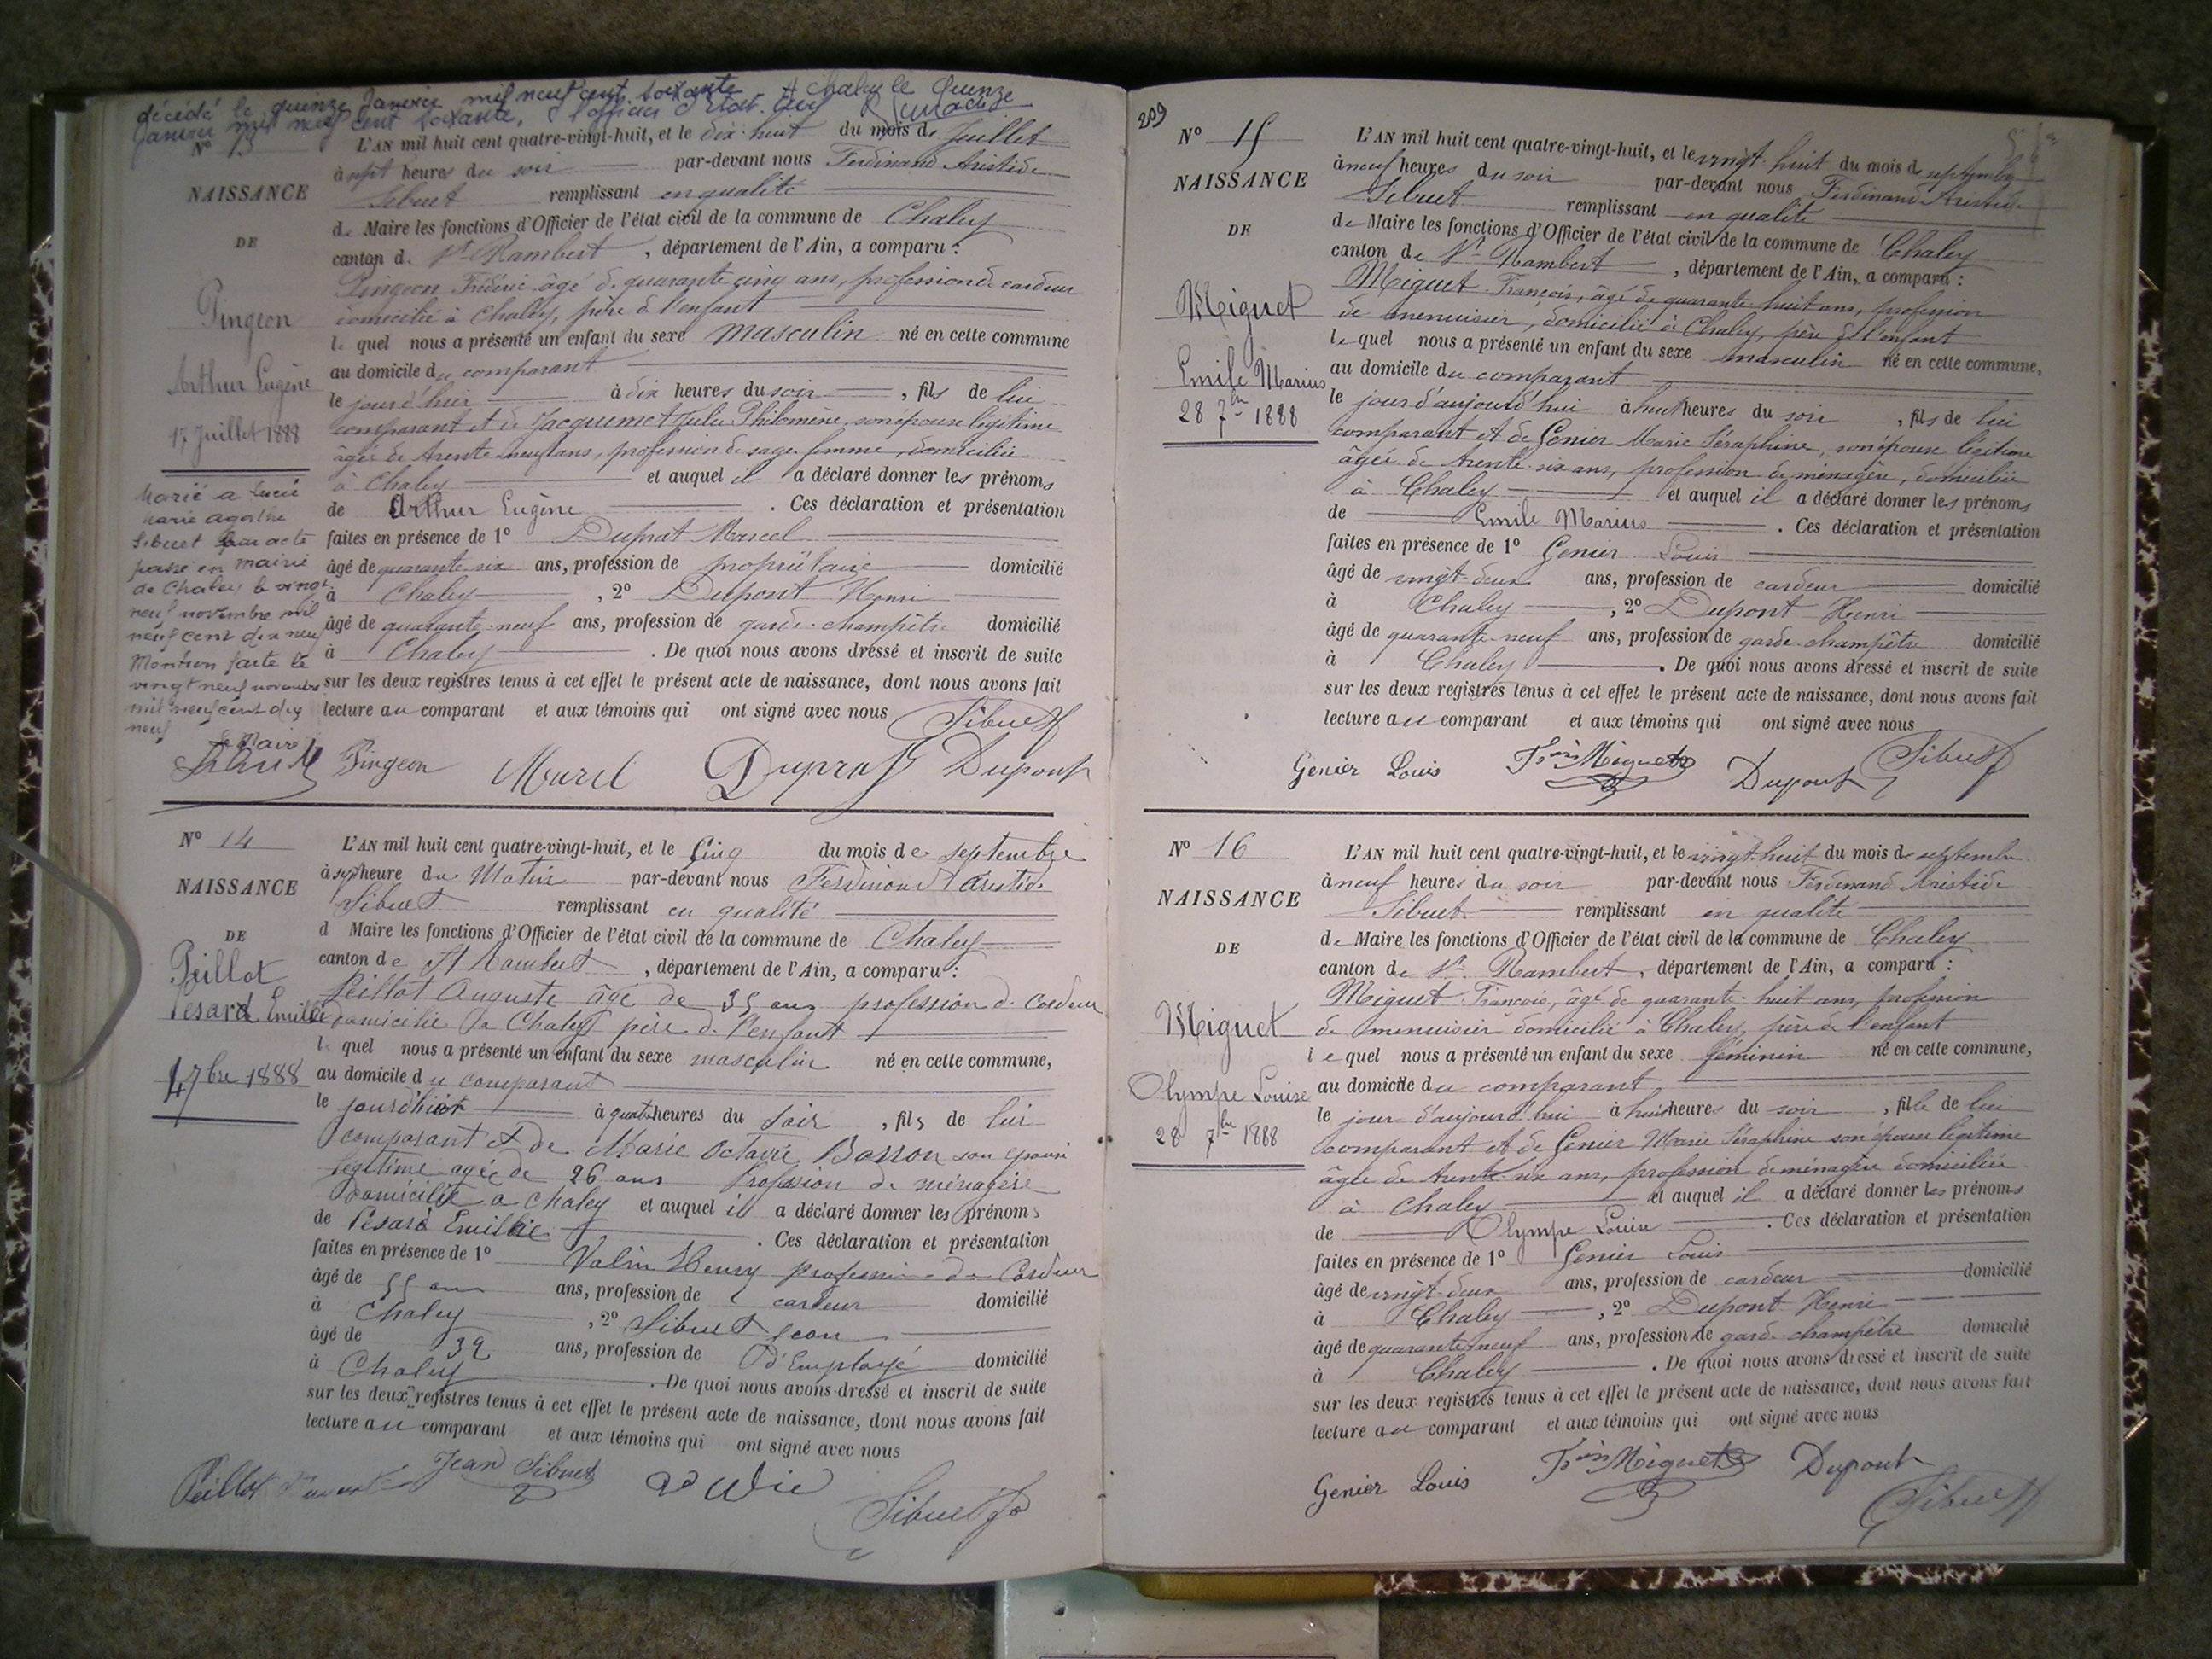 décédé le quinze Janvier mil neuf cent soixante. A Chaley le Quinze
Janvier mil neuf cent soixante. L'officier d'état civil
N° 13
NAISSANCE
DE
Pingeon
Arthur Eugène
17 Juillet 1888
Marié a Lucie
Marie Agathe
Sibuet par acte
passé en mairie
de Chaley le vingt
neuf novembre mil
neuf cent dix neuf
Mention faite le
vingt neuf novembre
mil neuf cent dix
neuf
Le Maire
L'AN mil huit cent quatre-vingt-huit, et le dix-huit du mois de Juillet
à sept heures du soir par-devant nous Ferdinand Aristide
Sibuet remplissant en qualité
de Maire les fonctions d'Officier de l'état civil de la commune de Chaley
canton de St Rambert, département de l'Ain, a comparu :
Pingeon Frédéric âgé de quarante cinq ans, profession de cardeur
domicilié à Chaley, père de l'enfant
le quel nous a présenté un enfant du sexe masculin né en cette commune
au domicile du comparant
le jour d'hier à dix heures du soir, fils de lui
comparant et de Jacquemet Julie Philomène, son épouse légitime
âgée de trente neuf ans, profession de sage femme, domiciliée
à Chaley et auquel il a déclaré donner les prénoms
de Arthur Eugène. Ces déclaration et présentation
faites en présence de 1° Duprat Marcel
âgé de quarante six ans, profession de propriétaire domicilié
à Chaley, 2° Dupont Henri
âgé de quarante-neuf ans, profession de garde-champêtre domicilié
à Chaley. De quoi nous avons dressé et inscrit de suite
sur les deux registres tenus à cet effet le présent acte de naissance, dont nous avons fait
lecture au comparant et aux témoins qui ont signé avec nous Sibuet
Pingeon Duprat Dupont
N° 14
NAISSANCE
DE
Peillot
Pesard Emille
4 7bre 1888
L'AN mil huit cent quatre-vingt-huit, et le Cinq du mois de septembre
à sept heure du Matin par-devant nous Ferdinand Aristide
Sibuet remplissant en qualité
d Maire les fonctions d'Officier de l'état civil de la commune de Chaley
canton de St Rambert, département de l'Ain, a comparu :
Peillot Auguste âgé de 35 ans profession de Cardeur
domicilié à Chaley père de l'enfant
le quel nous a présenté un enfant du sexe masculin né en cette commune,
au domicile du comparant
le jour d'hier à quatre heures du soir, fils de lui
comparant et de Marie Octavie Basson son épouse
légitime agée de 26 ans Profession de ménagère
Domicilié a Chaley et auquel il a déclaré donner les prénoms
de. Ces déclaration et présentation
faites en présence de 1° Valin Henry profession de Cardeur
âgé de 55 ans ans, profession de cardeur domicilié
à Chaley, 2° Sibuet Jean
âgé de 32 ans, profession de d'Employé domicilié
à Chaley. De quoi nous avons dressé et inscrit de suite
sur les deux registres tenus à cet effet le présent acte de naissance, dont nous avons fait
lecture au comparant et aux témoins qui ont signé avec nous
Peillot Jean Sibuet
Sibuet
209
N° 15
NAISSANCE
DE
Miguet
Emile Marius
28 7bre 1888
L'AN mil huit cent quatre-vingt-huit, et le vingt-huit du mois de septembre
à neuf heures du soir par-devant nous Ferdinand Aristide
Sibuet remplissant en qualité
de Maire les fonctions d'Officier de l'état civil de la commune de Chaley
canton de St Rambert, département de l'Ain, a comparu :
Miguet François, âgé de quarante-huit ans, profession
de menuisier, domicilié à Chaley, père de l'enfant
le quel nous a présenté un enfant du sexe masculin né en cette commune,
au domicile du comparant
le jour d'aujourd'hui à huit heures du soir, fils de lui
comparant et de Genier Marie Séraphine, son épouse légitime
âgée de trente-six ans, profession de ménagère, domiciliée
à Chaley et auquel il a déclaré donner les prénoms
de Emile Marius. Ces déclaration et présentation
faites en présence de 1° Genier Louis
âgé de vingt-deux ans, profession de cardeur domicilié
à Chaley, 2° Dupont Henri
âgé de quarante-neuf ans, profession de garde-champêtre domicilié
à Chaley. De quoi nous avons dressé et inscrit de suite
sur les deux registres tenus à cet effet le présent acte de naissance, dont nous avons fait
lecture au comparant et aux témoins qui ont signé avec nous
Genier Louis Fçois Miguet Dupont Sibuet
N° 16
NAISSANCE
DE
Miguet
Olympe Louise
28 7bre 1888
L'AN mil huit cent quatre-vingt-huit, et le vingt-huit du mois de septembre
à neuf heures du soir par-devant nous Ferdinand Aristide
Sibuet remplissant en qualité
de Maire les fonctions d'Officier de l'état civil de la commune de Chaley
canton de St Rambert, département de l'Ain, a comparu :
Miguet François, âgé de quarante-huit ans, profession
de menuisier domicilié à Chaley, père de l'enfant
le quel nous a présenté un enfant du sexe féminin né en cette commune,
au domicile du comparant,
le jour d'aujourd'hui à huit heures du soir, fille de lui
comparant et de Genier Marie Séraphine son épouse légitime
âgée de trente-six ans, profession de ménagère domiciliée
à Chaley et auquel il a déclaré donner les prénoms
de Olympe Louise. Ces déclaration et présentation
faites en présence de 1° Genier Louis
âgé de vingt-deux ans, profession de cardeur domicilié
à Chaley, 2° Dupont Henri
âgé de quarante-neuf ans, profession de garde-champêtre domicilié
à Chaley. De quoi nous avons dressé et inscrit de suite
sur les deux registres tenus à cet effet le présent acte de naissance, dont nous avons fait
lecture au comparant et aux témoins qui ont signé avec nous
Genier Louis Fçois Miguet Dupont
Sibuet